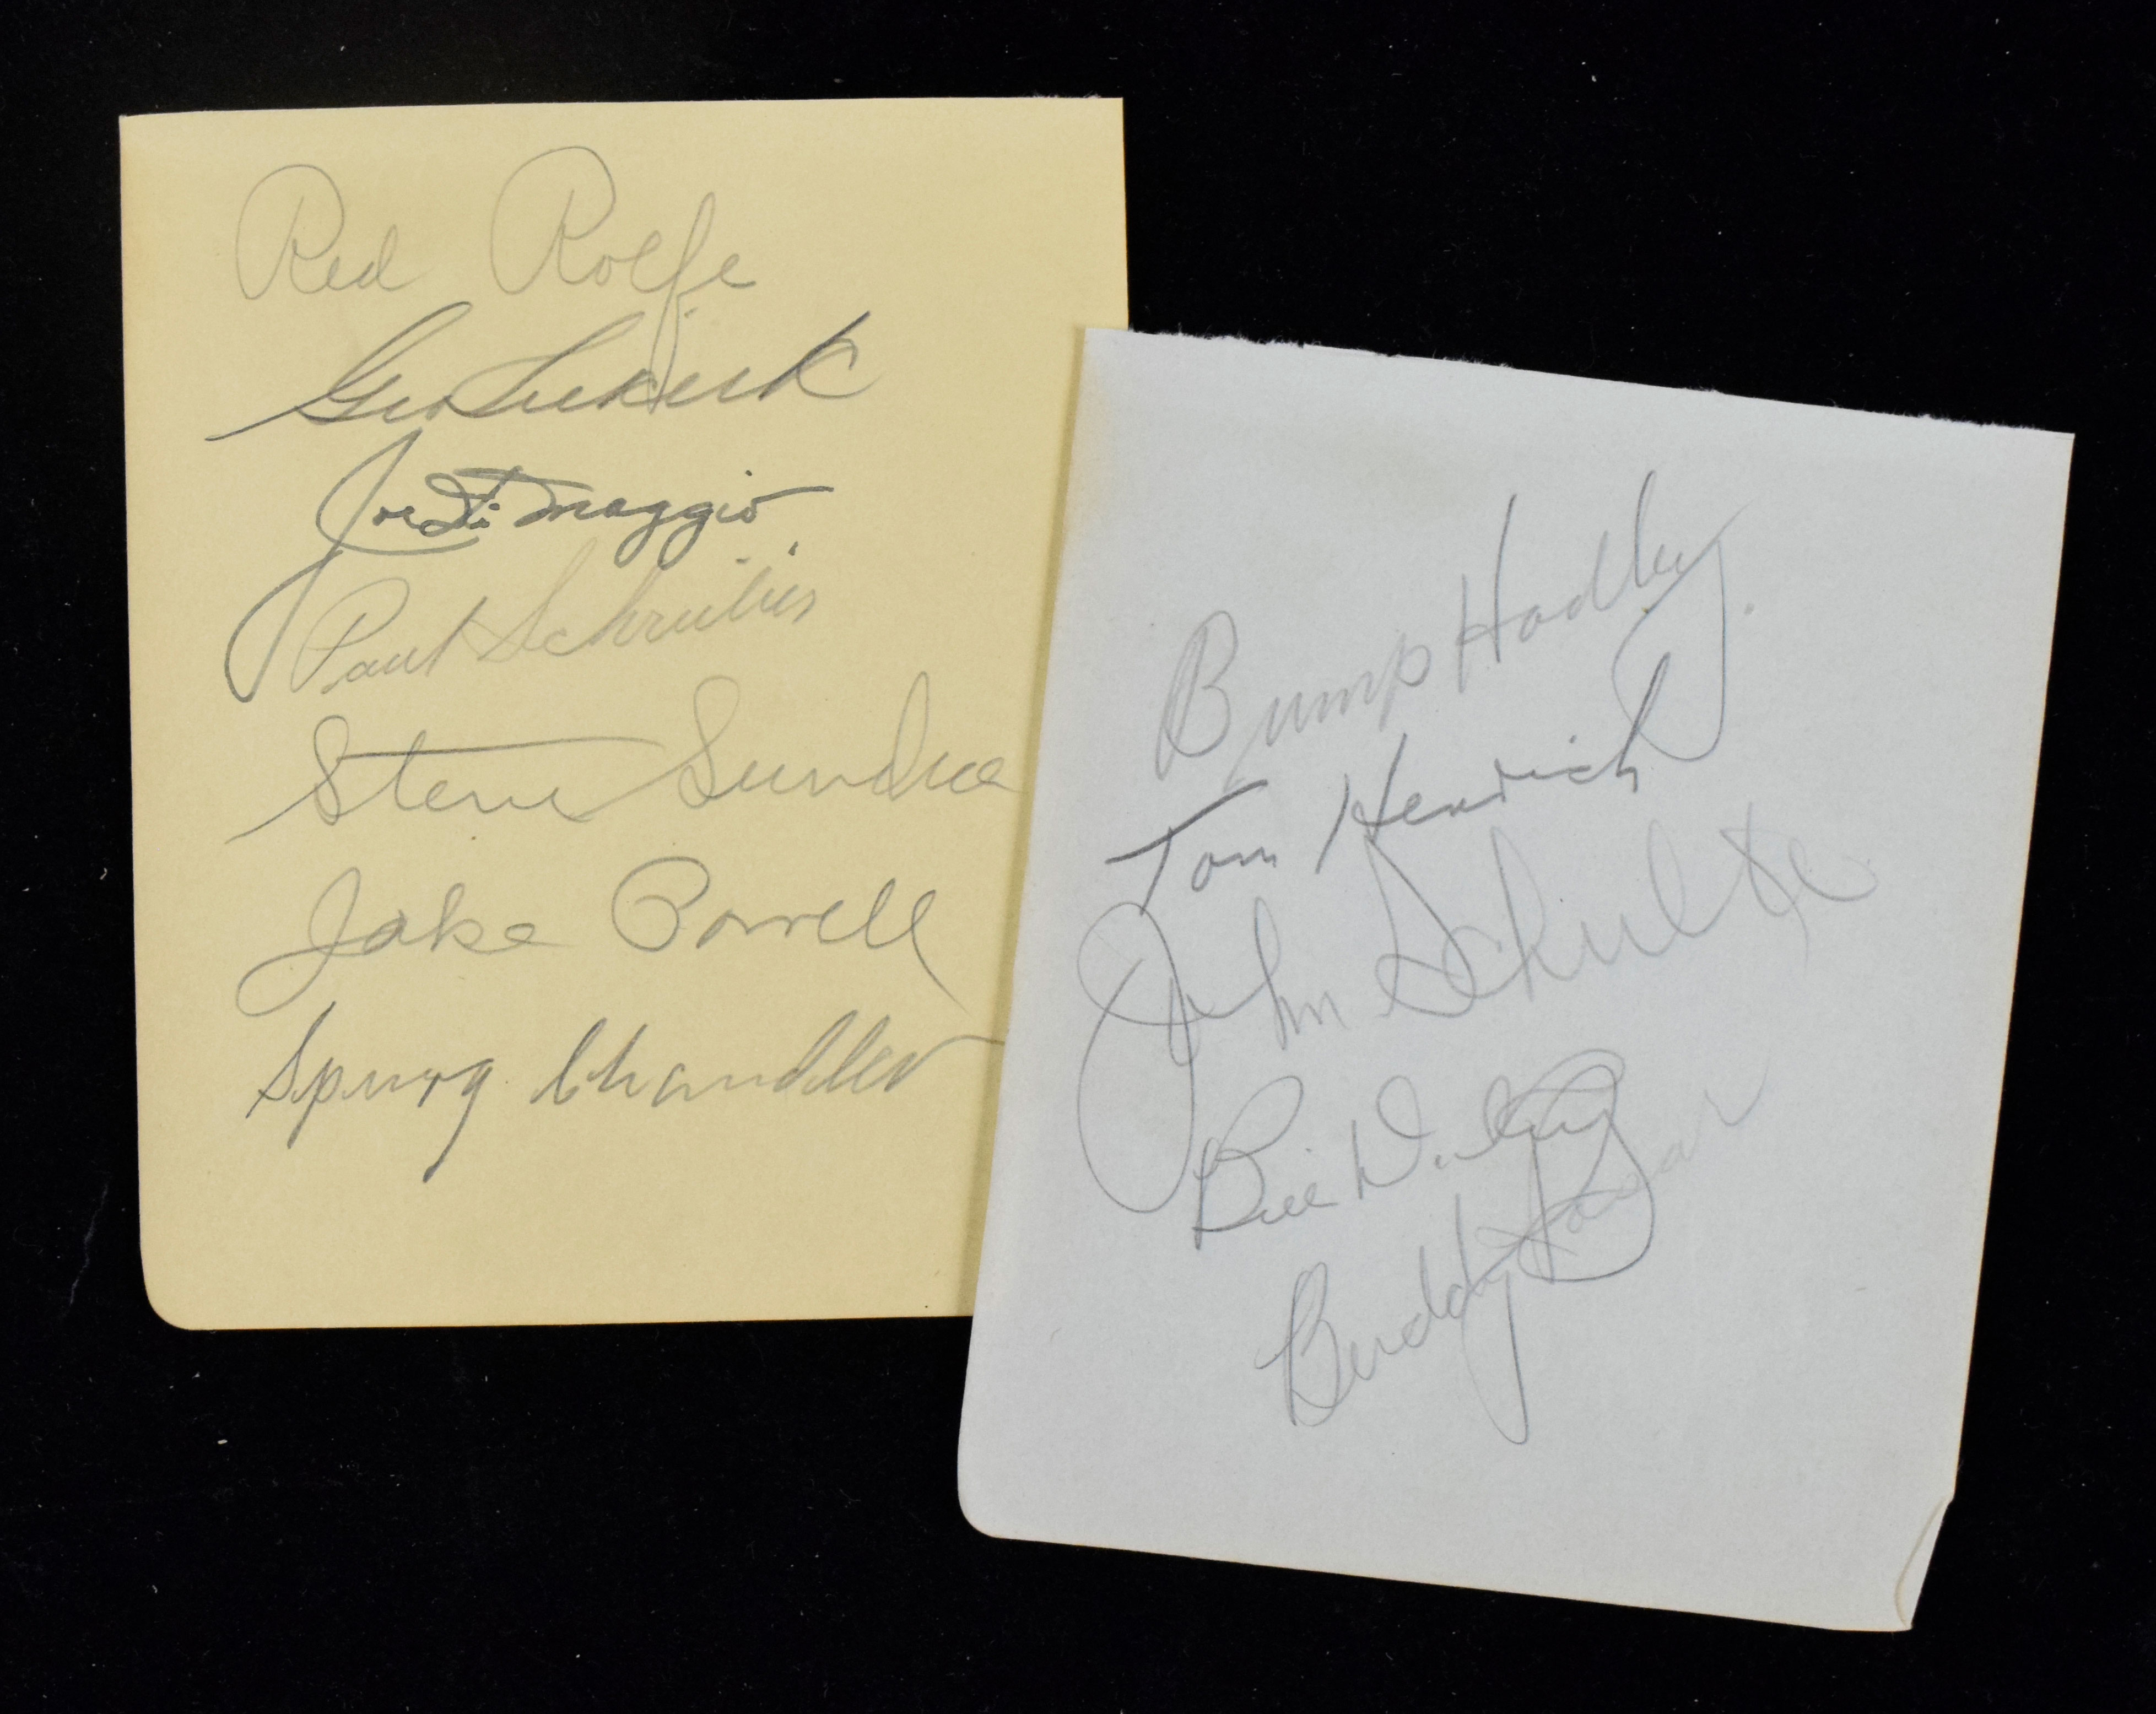 Red Rolfe
Geo Selkirk
Joe Di Maggio
Paul Schreiber
Steve Sundra
Jake Powell
Spurg Chandler
Bump Hadley
Tom Henrich
John Schulte
Bill Dickey
Buddy Rosar